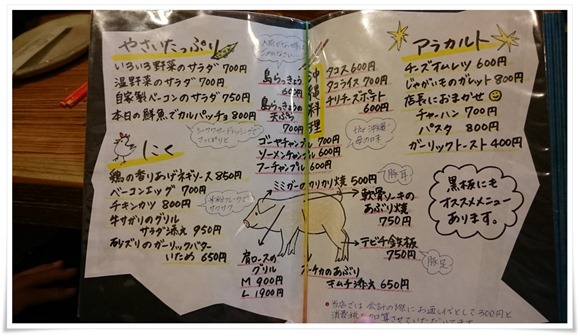 やさいたっぷり
いろいろ野菜のサラダ 700円
温野菜のサラダ 700円
自家製ベーコンのサラダ 750円
本日の鮮魚でカルパッチョ 800円
にく
鶏の香りあげネギソース 850円
ベーコンエッグ 700円
チキンカツ 800円
牛サガリのグリル
サラダ添え 950円
砂ズリのガーリックバター
いため 650円
沖縄料理
島らっきょう
島らっきょうの
天ぷら
700円
ゴーヤチャンプル 700円
ソーメンチャンプル 600円
フーチャンプル 600円
タコス 600円
タコライス 700円
チリチーズポテト
600円
ミミガーのカリカリ焼 500円
豚耳
軟骨ソーキの
あぶり焼
750円
テビチ鉄板
750円
豚足
肩ロースの
グリル
M 900円
L 1900円
キムチ添え 650円
アラカルト
チーズオムレツ 600円
じゃがいものガレット 800円
店長におまかせ
チャーハン 700円
パスタ 800円
ガーリックトースト 400円
黒板にも
オススメメニュー
あります。
当店では会計の際にお通し代として300円と